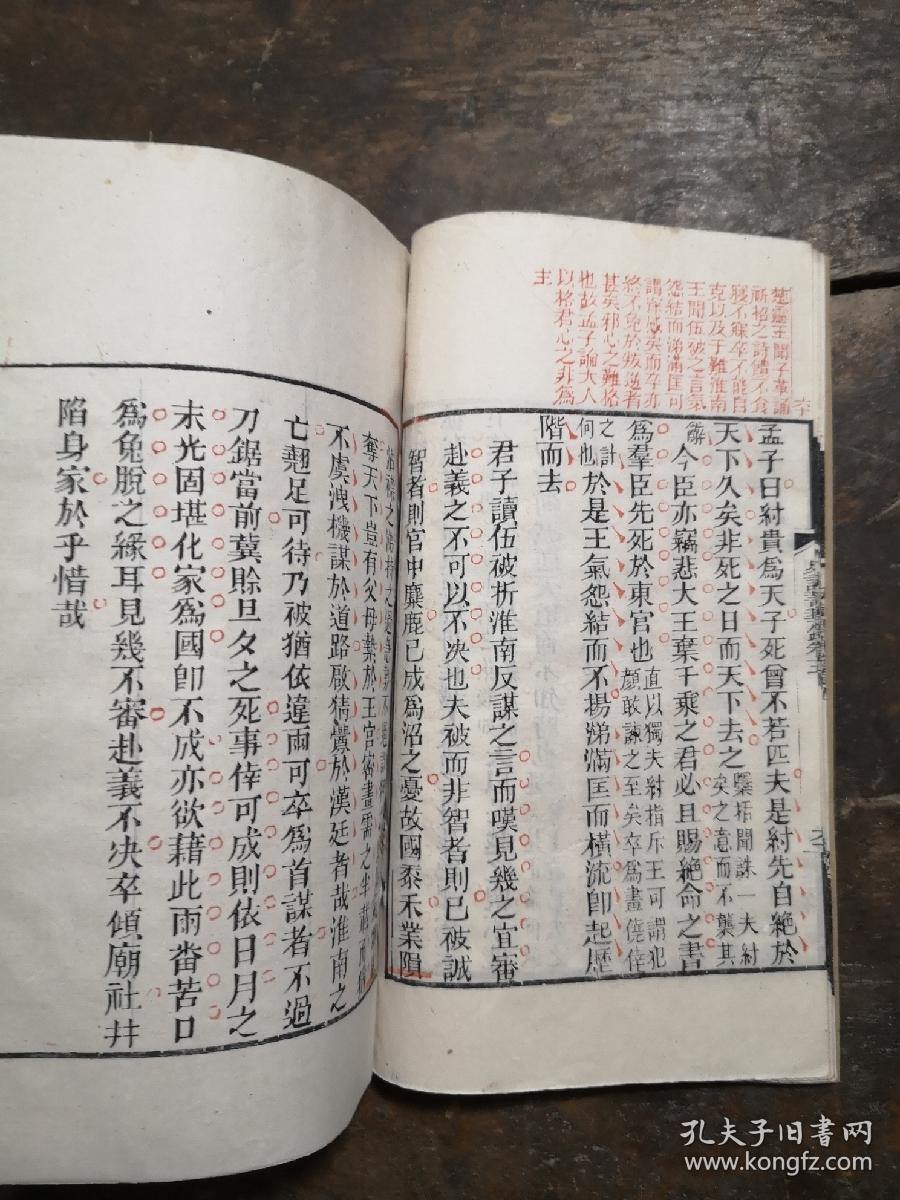 楚靈王聞子革誦
祈招之詩饋不食
寢不寐卒不能自
克以及于難淮南
王聞伍被之言氣
怨結而涕滿匡可
謂有感矣而卒亦
終不免於叛逆者
甚矣邪心之難格
也故孟子論大人
以格君心之非為
主
孟子曰紂貴爲天子死曾不若匹夫是紂先自絕於
天下久矣非死之日而天下去之檃栝聞誅一夫紂矣之意而不襲其
解今臣亦竊悲大王棄千乘之君必且賜絕命之書
爲羣臣先死於東宮也直以獨夫紂指斥王可謂犯顏敢諫之至矣卒爲畫僥倖
之計何也於是王氣怨結而不揚涕滿匡而橫流卽起歷
階而去
君子讀伍被折淮南反謀之言而嘆見幾之宜審
赴義之不可以不决也夫被而非智者則已被誠
智者則宫中麋鹿已成爲沼之憂故國黍禾業隕
奪天下豈有父母縶於王宮密畫需之坐
不虞洩機謀於道路啟猜釁於漢廷者哉淮南之
亡翹足可待乃被猶依違兩可卒爲首謀者不過
刀鋸當前冀賒旦夕之死事倖可成則依日月之
末光固堪化家爲國卽不成亦欲藉此兩番苦口
爲兔脫之緣耳見幾不審赴義不决卒傾廟社幷
陷身家於乎惜哉
孔夫子旧书网
www.kongfz.com